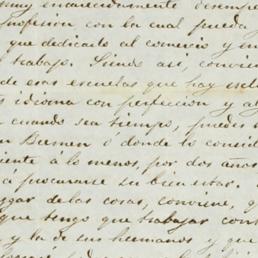 muy encarecidamente desempe
profesion, con la cual pueda
que dedicarte al comercio y m
trabajo. Siendo así, convien
de esas escuelas que hay esta
idioma con perfeccion y al
cuando sea tiempo, puedes
en Bremen ó donde lo consid
iente á lo menos, por dos años
á procurarse su bienestar.
uzgar de las cosas, conviene, q
que tengo que trabajar cont
y la de sus hermanos y que